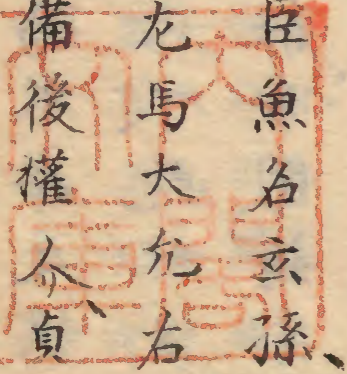 臣魚名玄孫、
左馬大允右
備後權介、貞